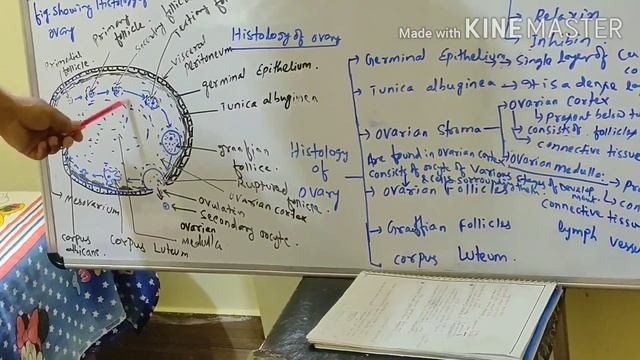 fig. showing Histology of
ovary
Primodial
follicle
Primary
follicle
Secondry follicle
Tertiary fo
visceral
peritoneum
germinal Epithelium.
Tunica albuginea
graafian
follicle.
Ruptured follicle.
ovarian cortex
ovulatin
Secondary oocyte.
ovarian
medulla
Mesovarium
corpus
albicans.
Corpus Luteum
Histology of ovary
Made with KINEMASTER
Relaxin
Inhibin.
Histology
of
ovary
Germinal Epithelium
Single layer of Cu
Tunica albuginea
It is a dense la
ovarian Stroma
ovarian cortex
Present below tu
consists of follicles
connective tissu
ovarian medulla
Are found in ovarian cortex
Consists of oocyte of various stages of develop
ment.
ovarian follicles
connective tissu
Graafian follicles
lymph vesse
corpus luteum.